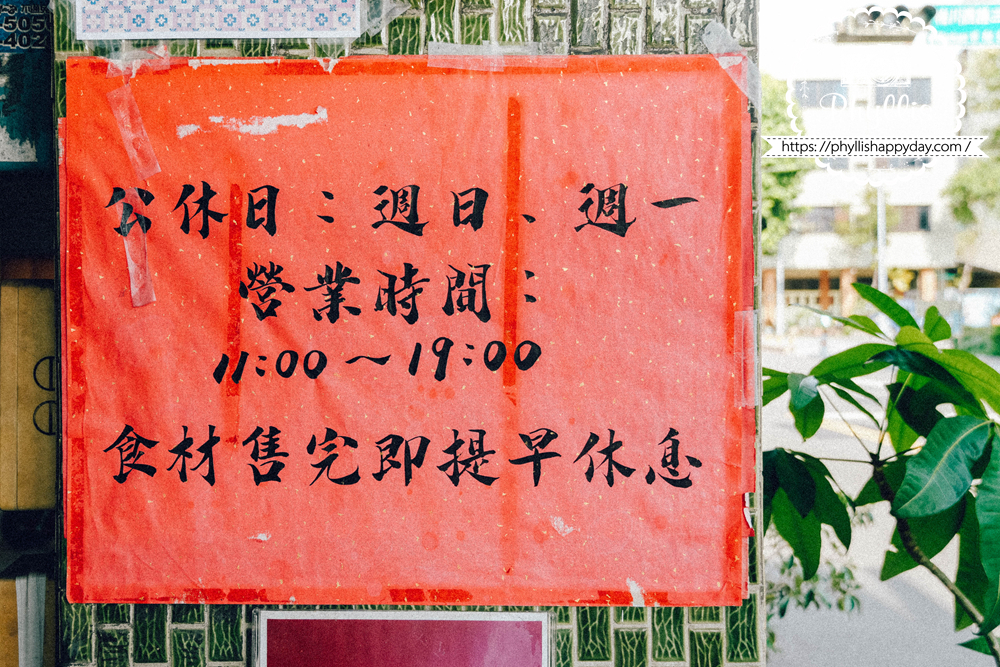 505
402
https://phyllishappyday.com/
公休日：週日、週一
營業時間：
11:00～19:00
食材售完即提早休息